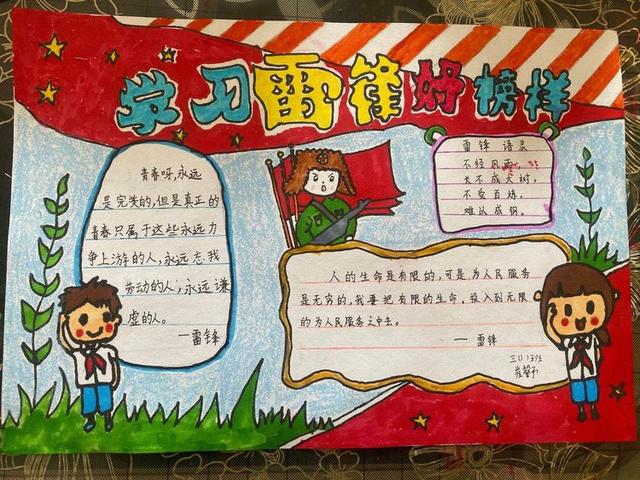 学习雷锋好榜样
青春呀,永远
是完美的,但是真正的
青春只属于这些永远力
争上游的人,永远忘我
劳动的人,永远谦
虚的人。
—雷锋
雷锋 语录
不经风雨,
长不成大树,
不受百炼,
难以成钢。
人的生命是有限的,可是为人民服务
是无穷的,我要把有限的生命,投入到无限
的为人民服务之中去。
— 雷锋